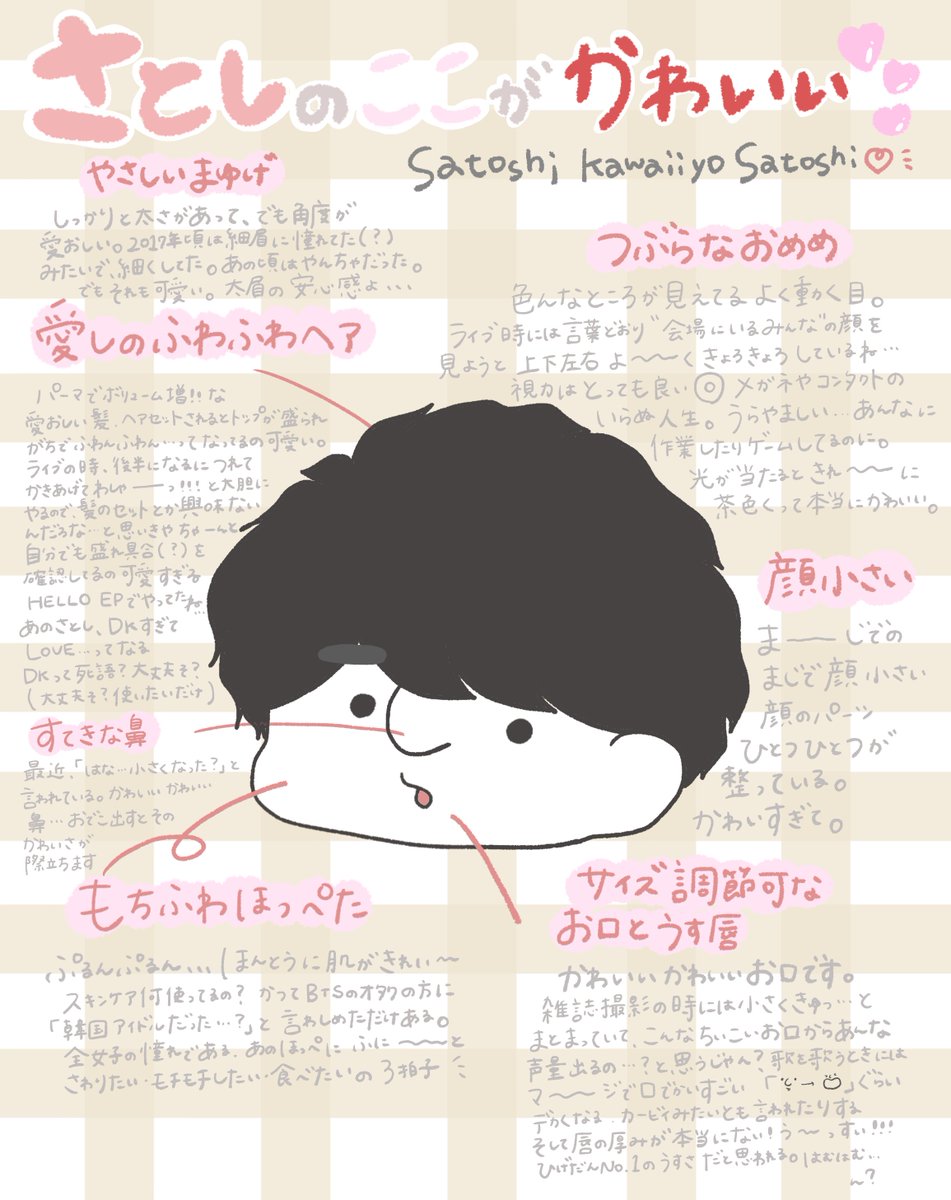 さとしのここがかわいい
Satoshi kawaiiyo Satoshi
やさしいまゆげ
しっかりと太さがあって、でも角度が
愛おしい。2017年頃は細眉に憧れてた(?)
みたいで、細くしてた。あの頃はやんちゃだった。
でもそれも可愛い。太眉の安心感よ...
つぶらなおめめ
色んなところが見えてるよく動く目。
ライブ時には言葉どおり"会場にいるみんな"の顔を
見ようと上下左右よ〜〜くきょろきょろしているね...
視力はとっても良い◎メガネやコンタクトの
いらぬ人生。うらやましい...あんなに
作業したりゲームしてるのに。
光が当たるときれ〜〜に
茶色くって本当にかわいい。
愛しのふわふわヘア
パーマでボリューム増!!な
愛おしい髪.ヘアセットされるとトップが盛られ
がちでふわんふわん...ってなってるの可愛い。
ライブの時、後半になるにつれて
かきあげてわしゃーーっ!!!と大胆に
やるので、髪のセットとか興味ない
んだろな...と思いきやちゃーんと
自分でも盛れ具合(?)を
確認してるの可愛すぎる
HELLO EPでやってたね...
あのさとし、DKすぎて
LOVE...ってなる
DKって死語?大丈夫そ?
(大丈夫そ?使いたいだけ)
顔小さい
ま――じでの
まじで顔小さい
顔のパーツ
ひとつひとつが
整っている。
かわいすぎて。
すてきな鼻
最近、「はな...小さくなった?」と
言われている。かわいいかわいい
鼻...おでこ出すとその
かわいさが
際立ちます
もちふわほっぺた
ぷるんぷるん...ほんとうに肌がきれい〜
スキンケア何使ってるの?かつてBTSのオタクの方に
「韓国アイドルだった...?」と言わしめただけある。
全女子の憧れである.あのほっぺにふに〜〜と
さわりたい・モチモチしたい・食べたいの3拍子
サイズ調節可な
お口とうす唇
かわいいかわいいお口です。
雑誌撮影の時には小さくきゅっ...と
まとまっていて、こんなちいこいお口からあんな
声量出るの...?と思うじゃん?歌を歌うときには
マ〜〜ジで口でかいすごい「→」ぐらい
デカくなる.カービィみたいとも言われたりする
そして唇の厚みが本当にない!う〜っすい!!!
ひげだんNo.1のうすさだと思われる。はむはむ...
〜?